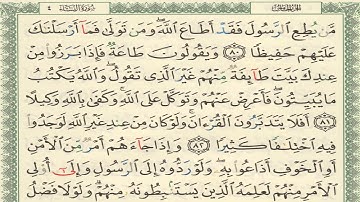 سورة النساء ٤
مَّن يُطِعِ ٱلرَّسُولَ فَقَدْ أَطَاعَ ٱللَّهَ ۖ وَمَن تَوَلَّىٰ فَمَآ أَرْسَلْنَٰكَ
عَلَيْهِمْ حَفِيظًا ﴿٨٠﴾ وَيَقُولُونَ طَاعَةٌ فَإِذَا بَرَزُوا۟ مِنْ
عِندِكَ بَيَّتَ طَآئِفَةٌ مِّنْهُمْ غَيْرَ ٱلَّذِى تَقُولُ ۖ وَٱللَّهُ يَكْتُبُ
مَا يُبَيِّتُونَ ۖ فَأَعْرِضْ عَنْهُمْ وَتَوَكَّلْ عَلَى ٱللَّهِ ۚ وَكَفَىٰ بِٱللَّهِ وَكِيلًا
﴿٨١﴾ أَفَلَا يَتَدَبَّرُونَ ٱلْقُرْءَانَ ۚ وَلَوْ كَانَ مِنْ عِندِ غَيْرِ ٱللَّهِ لَوَجَدُوا۟
فِيهِ ٱخْتِلَٰفًا كَثِيرًا ﴿٨٢﴾ وَإِذَا جَآءَهُمْ أَمْرٌ مِّنَ ٱلْأَمْنِ
أَوِ ٱلْخَوْفِ أَذَاعُوا۟ بِهِۦ ۖ وَلَوْ رَدُّوهُ إِلَى ٱلرَّسُولِ وَإِلَىٰٓ أُو۟لِى
ٱلْأَمْرِ مِنْهُمْ لَعَلِمَهُ ٱلَّذِينَ يَسْتَنۢبِطُونَهُۥ مِنْهُمْ ۗ وَلَوْلَا فَضْلُ